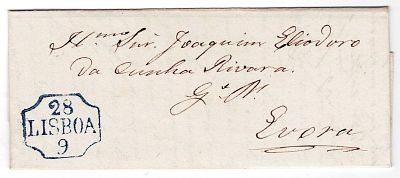 Il.mo Snr. Joaquim Eliodoro
da Cunha Rivara.
G.e N.l
Evora
28
LISBOA
9